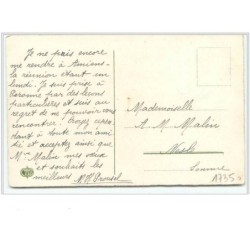 Je ne pais encore
me rendre à Amiens
la réunion étant un
lundi. Je suis prise à
Péronne par des leçons
particulières et suis au
regret de ne pouvoir vous
rencontrer. Croyez cepen-
dant à toute mon ami
tié et acceptez ainsi que
Mr Malin mes vœux
et souhaits les
meilleurs.
Mademoiselle
A. M. Malin
Nesle
Somme
1735